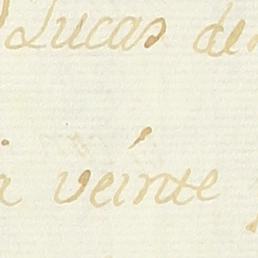 Lucas de
a veinte